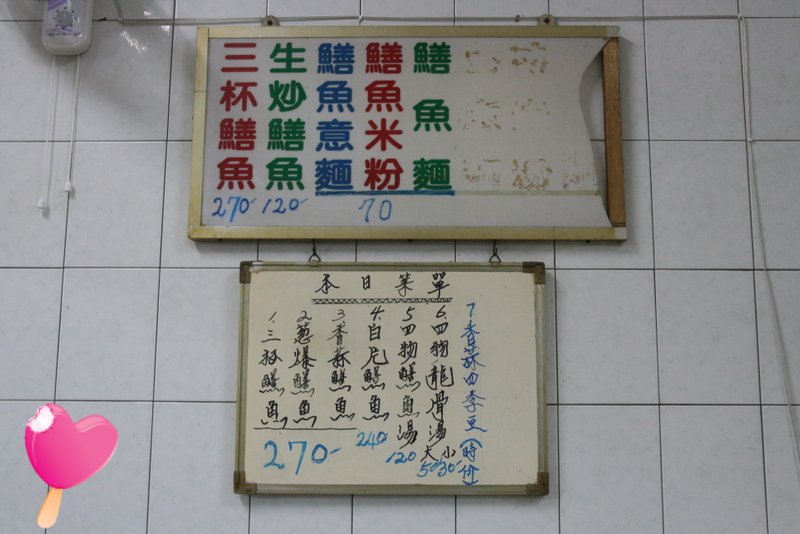 鱔魚麵
鱔魚米粉
鱔魚意麵
70
生炒鱔魚
120
三杯鱔魚
270
本日菜單
1.三杯鱔魚
2.蔥爆鱔魚
3.香蒜鱔魚
270
4.白尼鱔魚
240
5.四物鱔魚湯
120
6.四物龍骨湯大小
50 30
7.香蒜四季豆(時价)